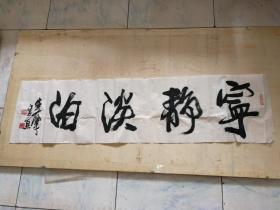 寧靜淡泊